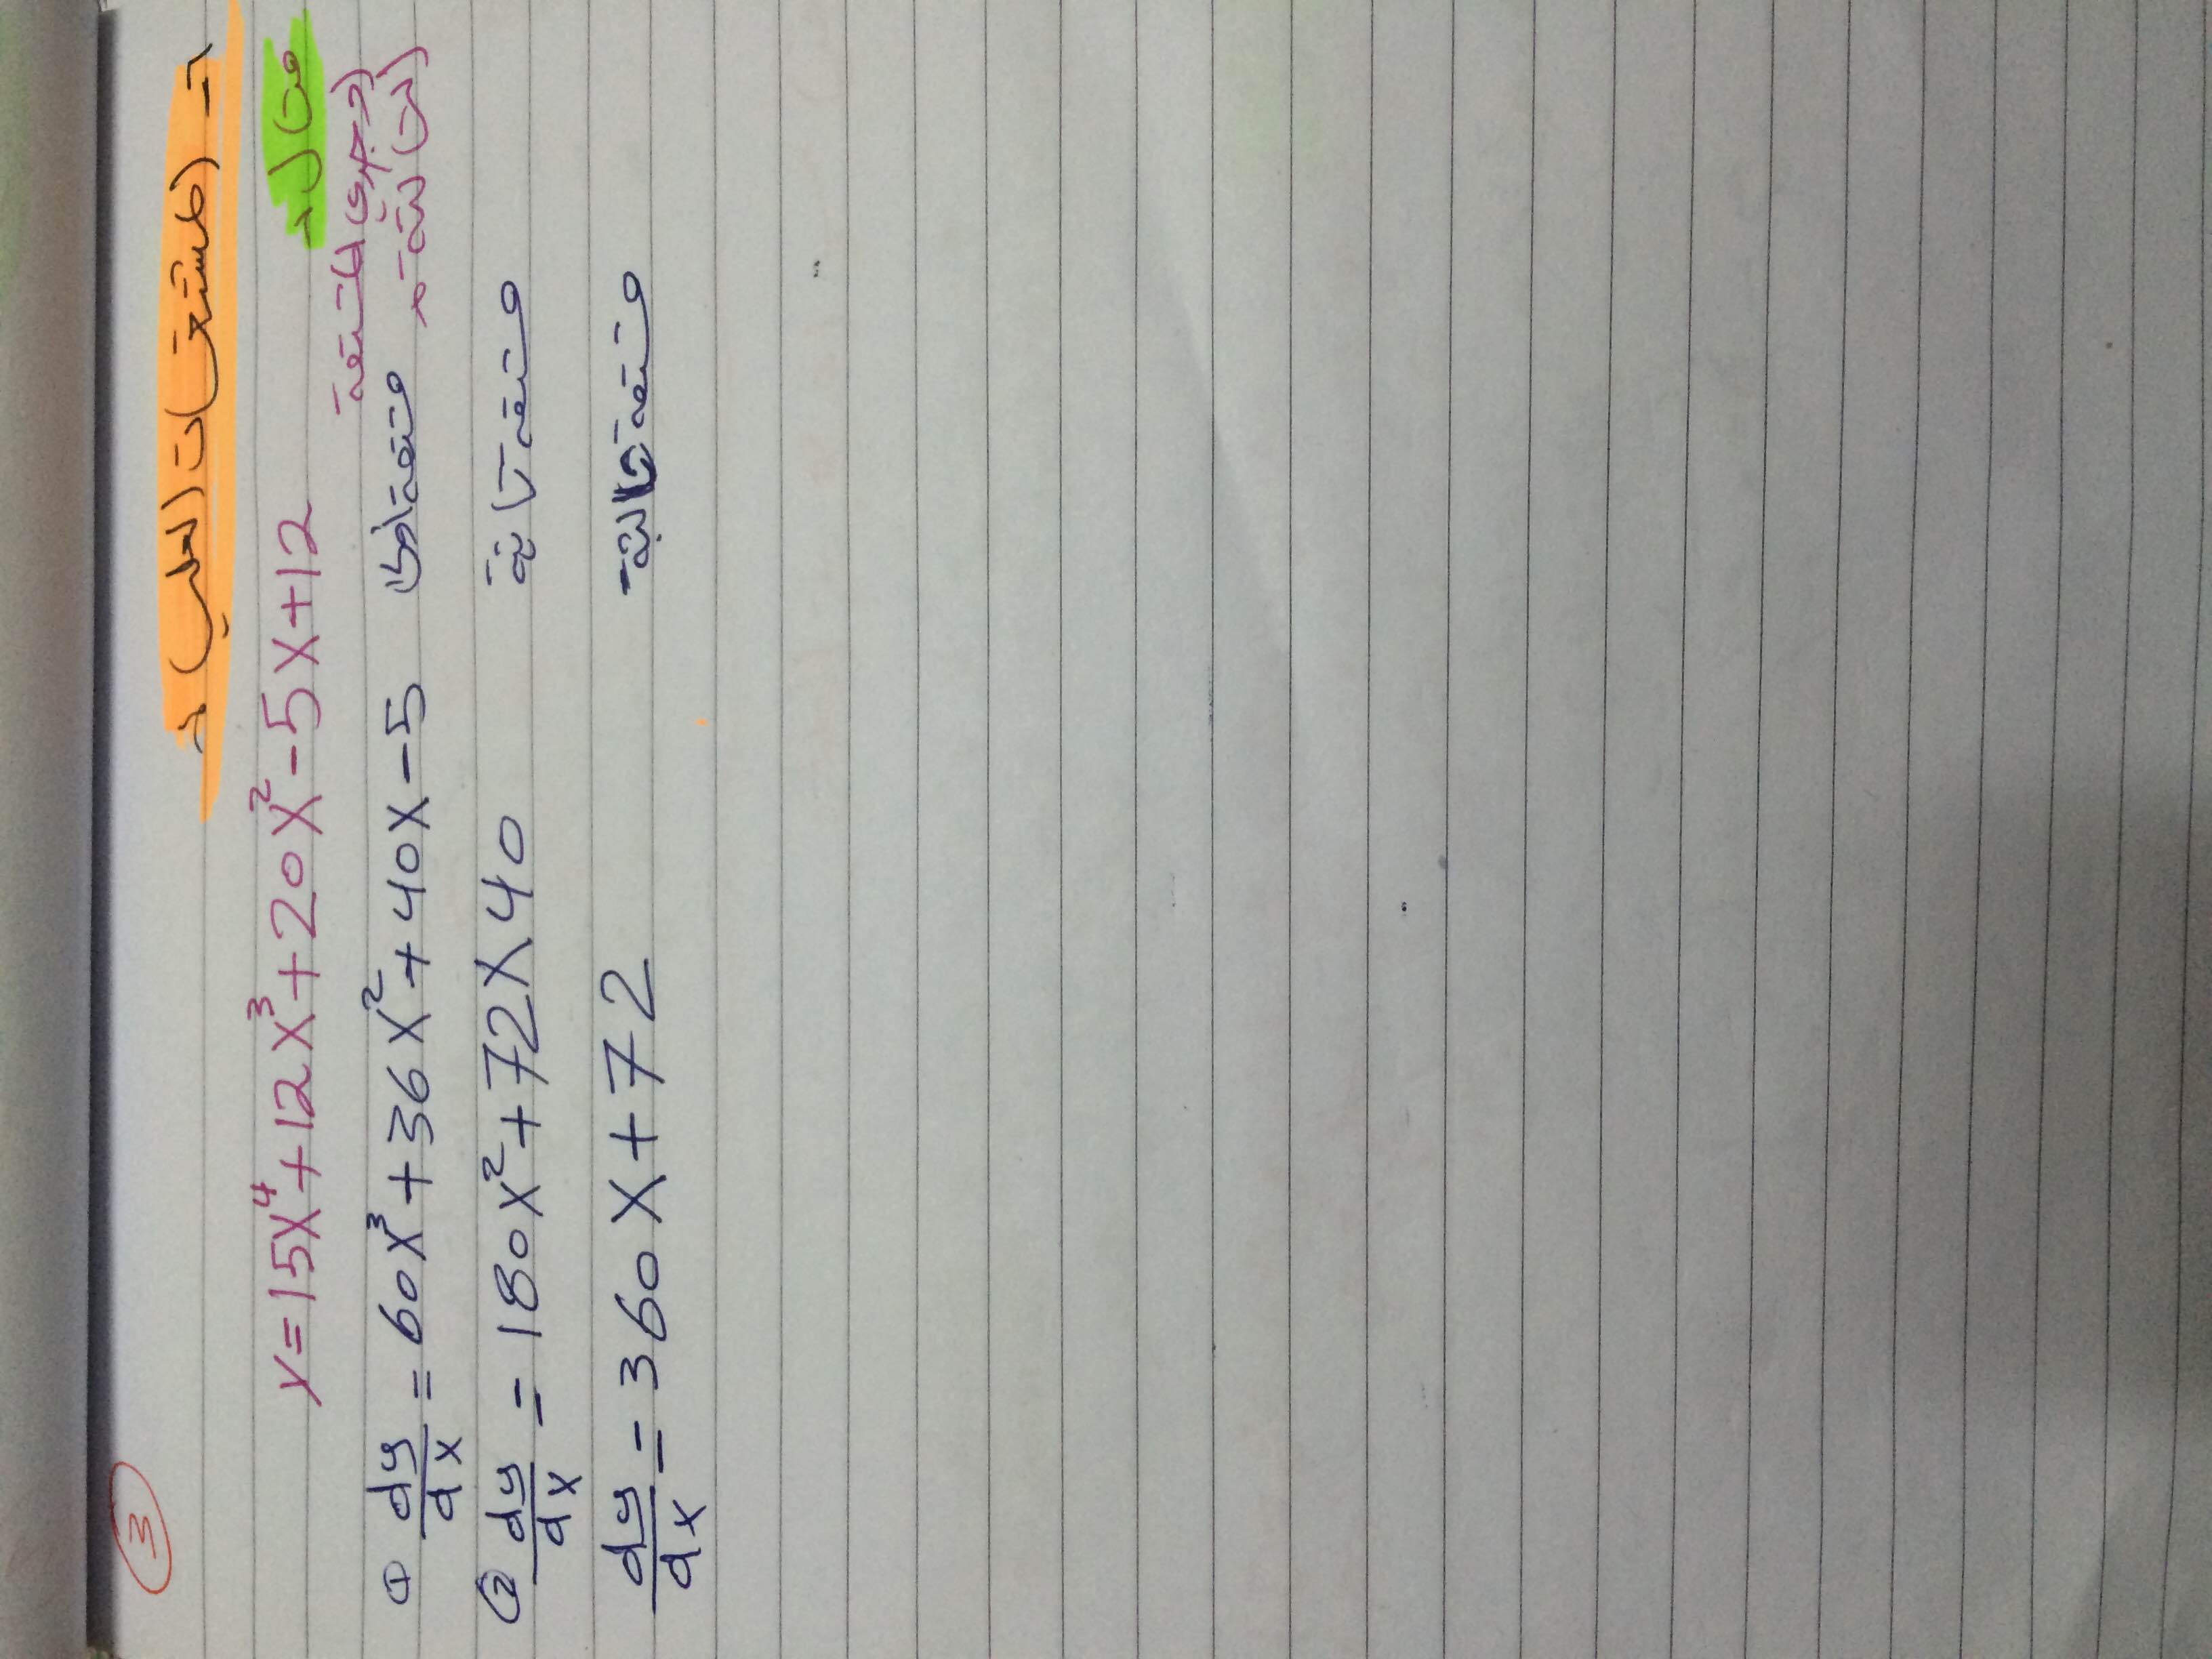 ③
المشتقات العليا :-
مثال :-
y = 15x⁴ + 12x³ + 20x² - 5x + 12
① dy/dx = 60x³ + 36x² + 40x - 5 مشتقة اولى
② dy/dx = 180x² + 72x 40 مشتقة ثانية
dy/dx = 360x + 72 مشتقة ثالثة